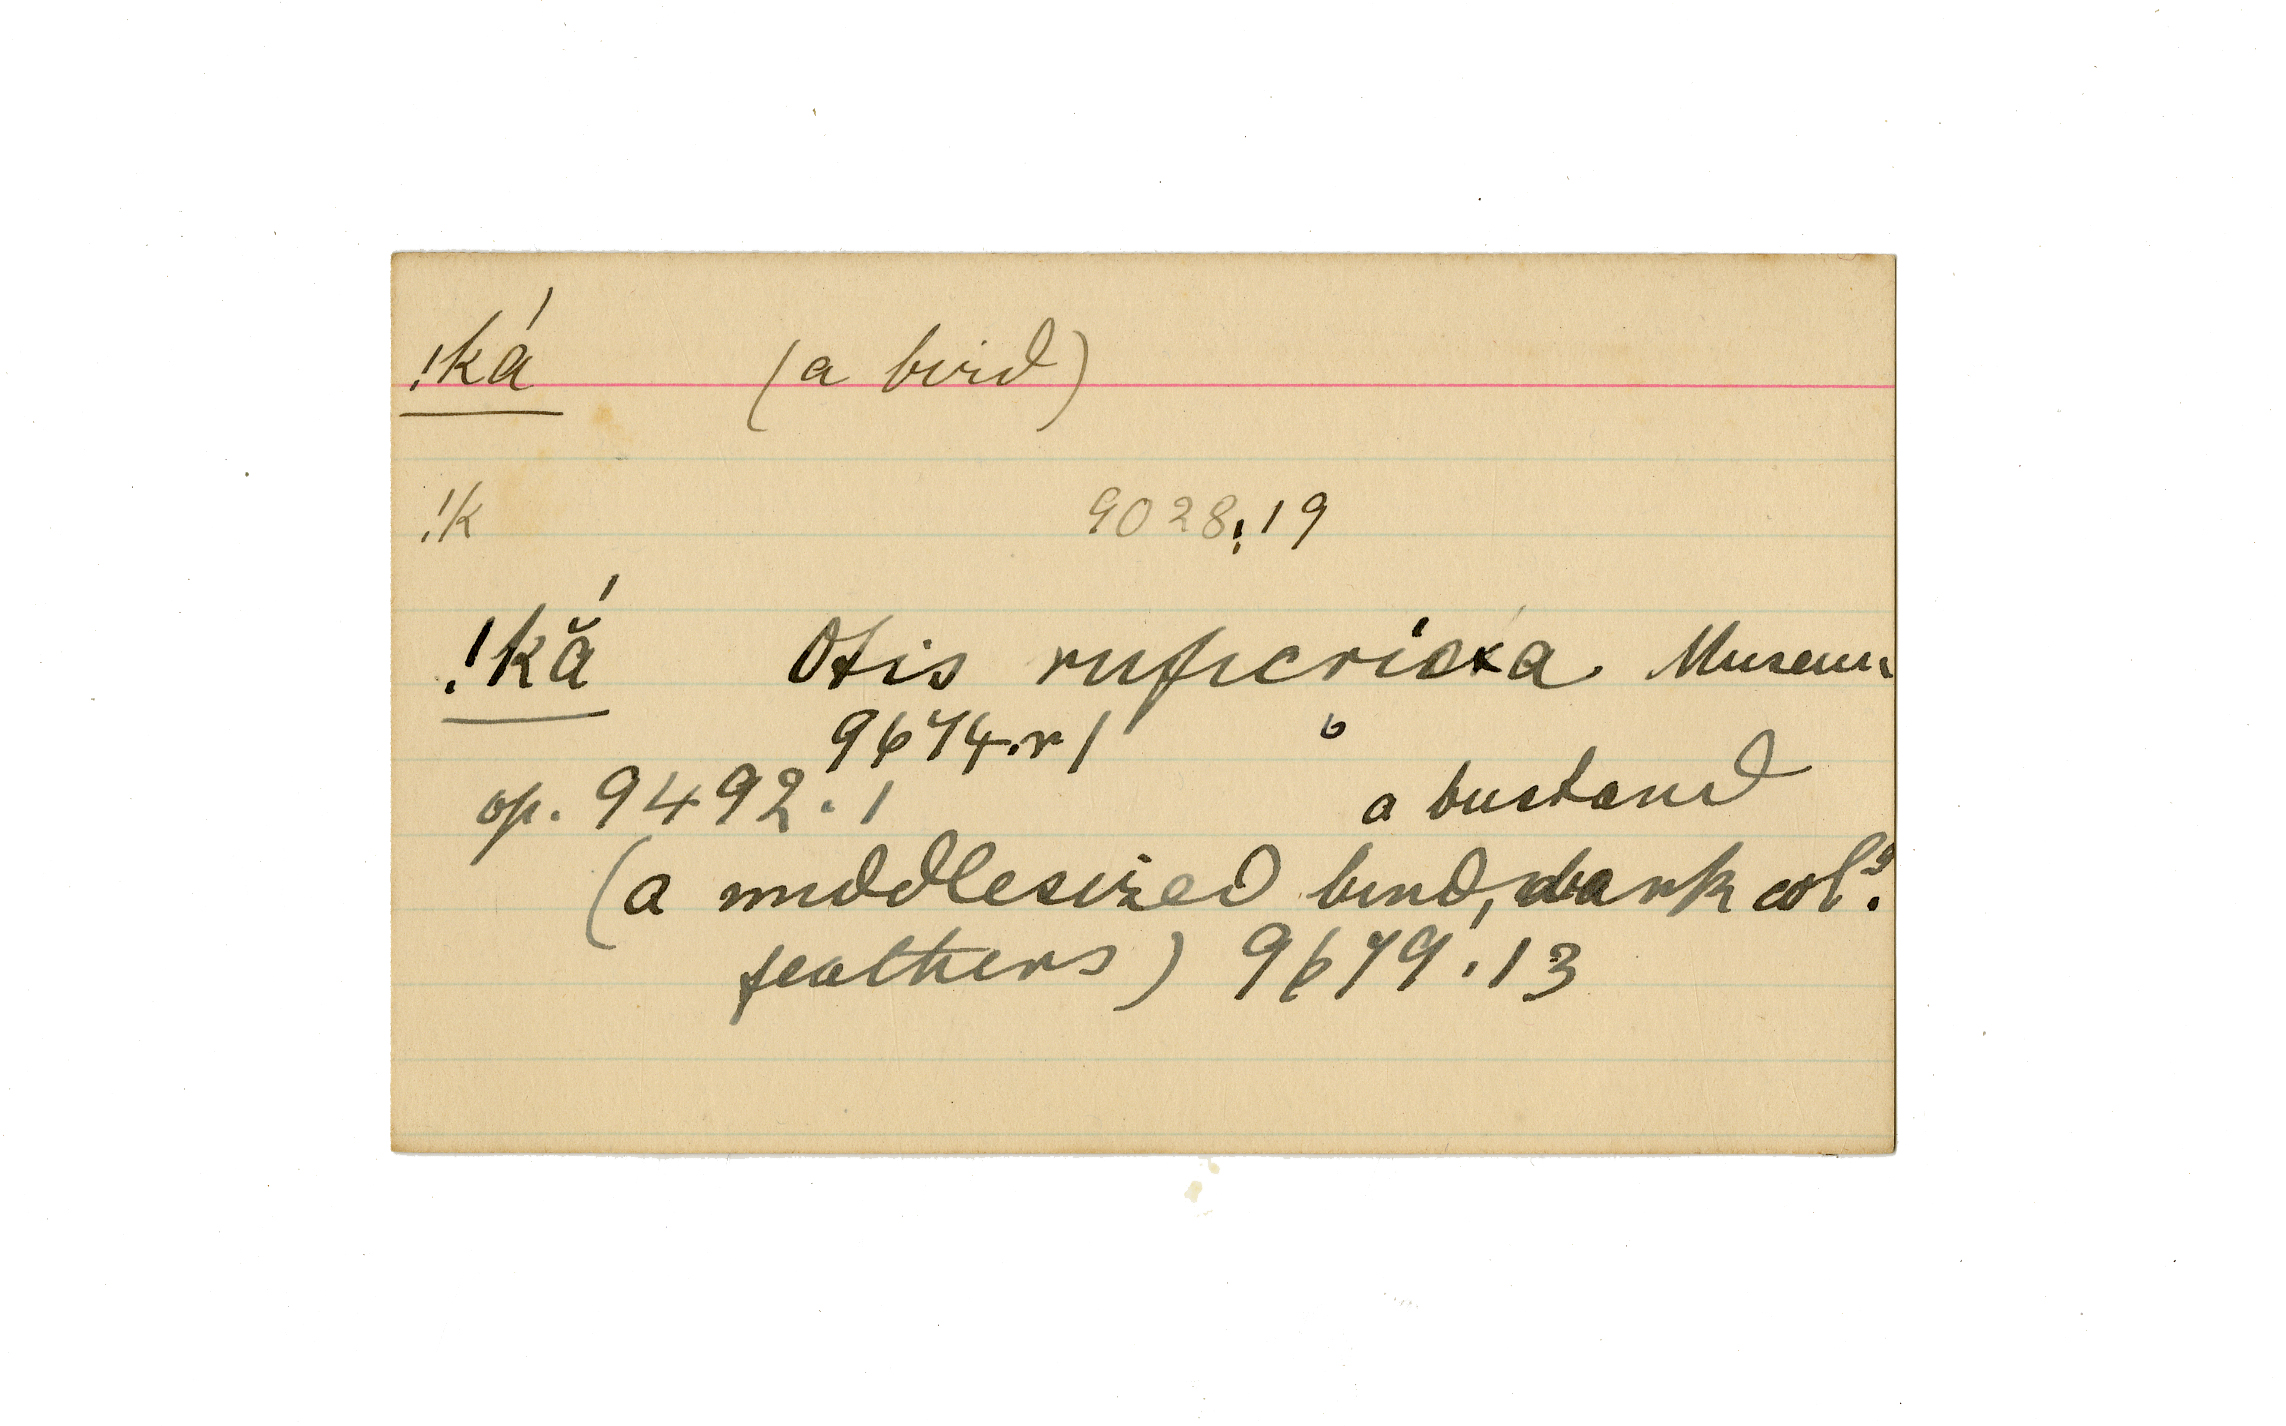 !ká (a bird)
!k 9028:19
!kắ Otis ruficrista. Museum
9674.r1 6
op. 9492.1 a bustard
(a middlesized bird, dark col.d
feathers) 9679.13